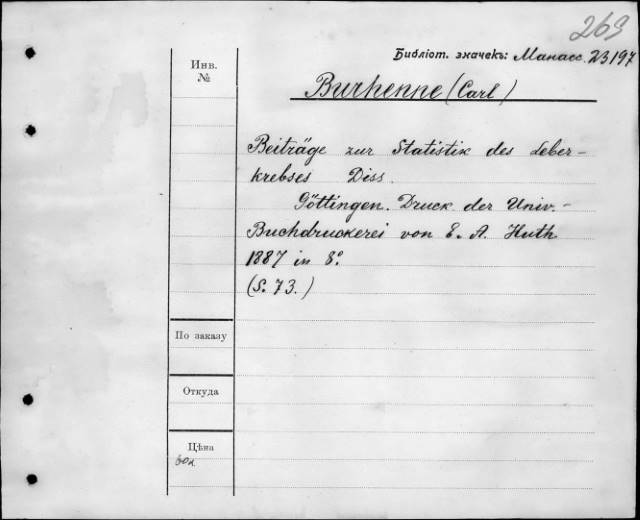 269
Библіот. значекъ: Манасс. 23197
Инв.
№
Burhenne (Carl)
Beiträge zur Statistik des Leber-
krebses Diss.
Göttingen. Druck der Univ.-
Buchdruckerei von E. A. Huth
1887 in 8°
(S. 73.)
По заказу
Откуда
Цѣна